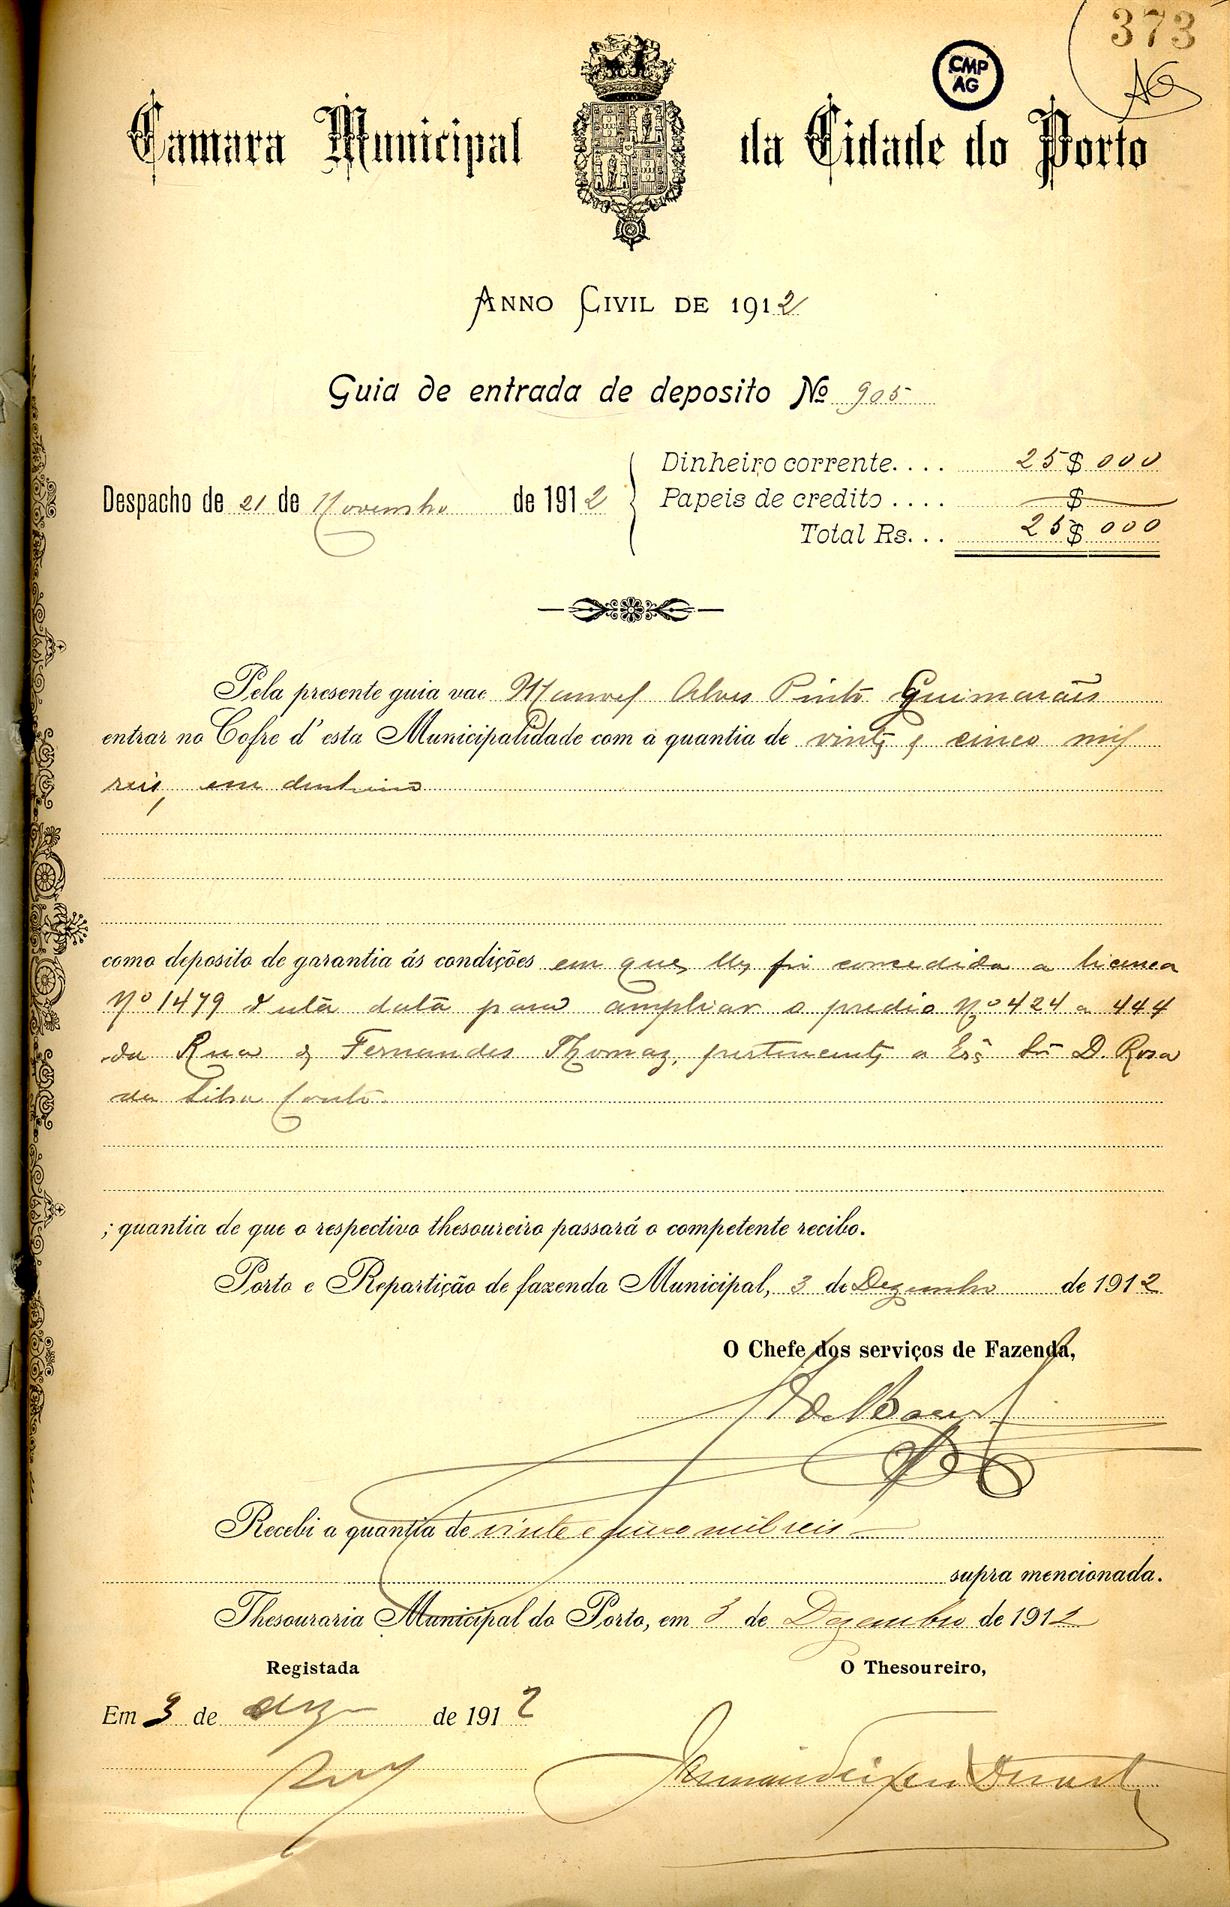 373
AG
CMP
AG
Camara Municipal da Cidade do Porto
ANNO CIVIL DE 1912
Guia de entrada de deposito No 905
Despacho de 21 de Novembro de 1912
Dinheiro corrente.... 25$000
Papeis de credito.... $
Total Rs... 25$000
Pela presente guia vae Manoel Alves Pinto Guimarães
entrar no Cofre d'esta Municipalidade com a quantia de vinte e cinco mil
reis, em dinheiro
como deposito de garantia ás condições em que lhe foi concedida a licença
Nº 1479 d'esta data para ampliar o predio Nº 424 a 444
da Rua de Fernandes Thomaz, pertencente a Exª Srª D. Rosa
da Silva Couto.
; quantia de que o respectivo thesoureiro passará o competente recibo.
Porto e Repartição de fazenda Municipal, 3 de Dezembro de 1912
O Chefe dos serviços de Fazenda,
Recebi a quantia de vinte e cinco mil reis
supra mencionada.
Thesouraria Municipal do Porto, em 3 de Dezembro de 1912
Registada
O Thesoureiro,
Em 3 de dez de 1912